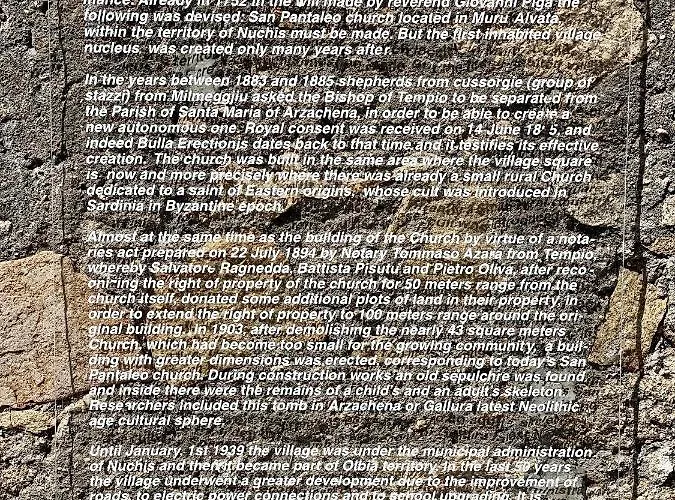 mance. Already in 1752 in the will made by reverend Giovanni Piga the
following was devised: San Pantaleo church located in Muru Alvata
within the territory of Nuchis must be made. But the first inhabited village
nucleus was created only many years after.
In the years between 1883 and 1885 shepherds from cussorgie (group of
stazzi) from Milmeggjiu asked the Bishop of Tempio to be separated from
the Parish of Santa Maria of Arzachena, in order to be able to create a
new autonomous one. Royal consent was received on 14 June 18 5, and
indeed Bulla Erectionis dates back to that time and it testifies its effective
creation. The church was built in the same area where the village square
is now and more precisely where there was already a small rural Church
dedicated to a saint of Eastern origins, whose cult was introduced in
Sardinia in Byzantine epoch.
Almost at the same time as the building of the Church by virtue of a nota-
ries act prepared on 22 July 1894 by Notary Tommaso Azara from Tempio,
whereby Salvatore Ragnedda, Battista Pisutu and Pietro Oliva, after reco-
gnizing the right of property of the church for 50 meters range from the
church itself, donated some additional plots of land in their property, in
order to extend the right of property to 100 meters range around the ori-
ginal building. In 1903, after demolishing the nearly 43 square meters
Church, which had become too small for the growing community, a buil-
ding with greater dimensions was erected, corresponding to today's San
Pantaleo church. During construction works an old sepulchre was found
and inside there were the remains of a child's and an adult's skeleton.
Researchers included this tomb in Arzachena or Gallura latest Neolithic
age cultural sphere.
Until January, 1st 1939 the village was under the municipal administration
of Nuchis and then it became part of Olbia territory. In the last 50 years
the village underwent a greater development due to the improvement of
roads, to electric power connections and to school upgrading. It is